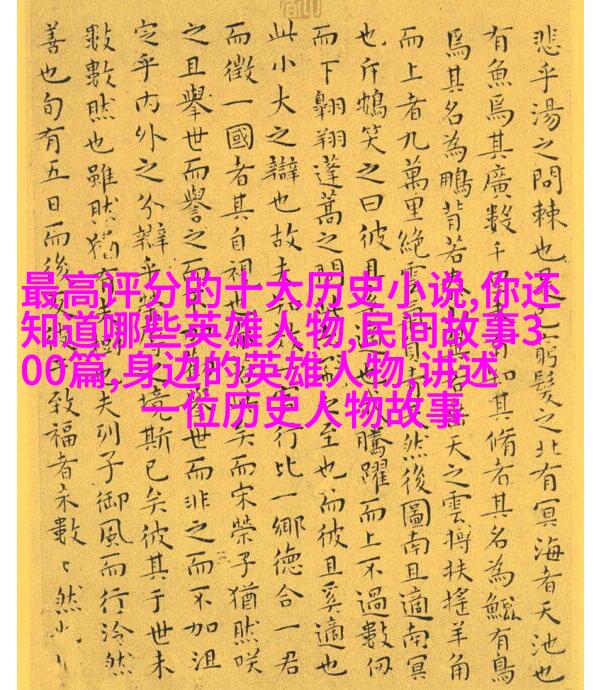 最高评分的十大历史小说,你还
知道哪些英雄人物,民间故事3
00篇,身边的英雄人物,讲述
一位历史人物故事
悲乎湯之問棘也窮髮之北有冥海者天池也
有魚焉其廣數千知其脩者其名為鯤有鳥
焉其名為鵬背若天之雲摶扶搖羊角
而上者九萬里絕雲然後圖南且適南冥
也斥鴳笑之曰彼且騰躍而上不過數仞
而下翱翔蓬蒿之間之至也而彼且奚適也
此小大之辯也故行比一鄉德合一君
而徵一國者其自視也矣而宋榮子猶然咲
之且舉世而譽之而舉世而非之而不加沮
定乎內外之分辯乎之境斯已矣彼其于世未
數數然也雖然猶樹也夫列子御風而行泠然
善也旬有五日而後反彼于致福者未數〻然